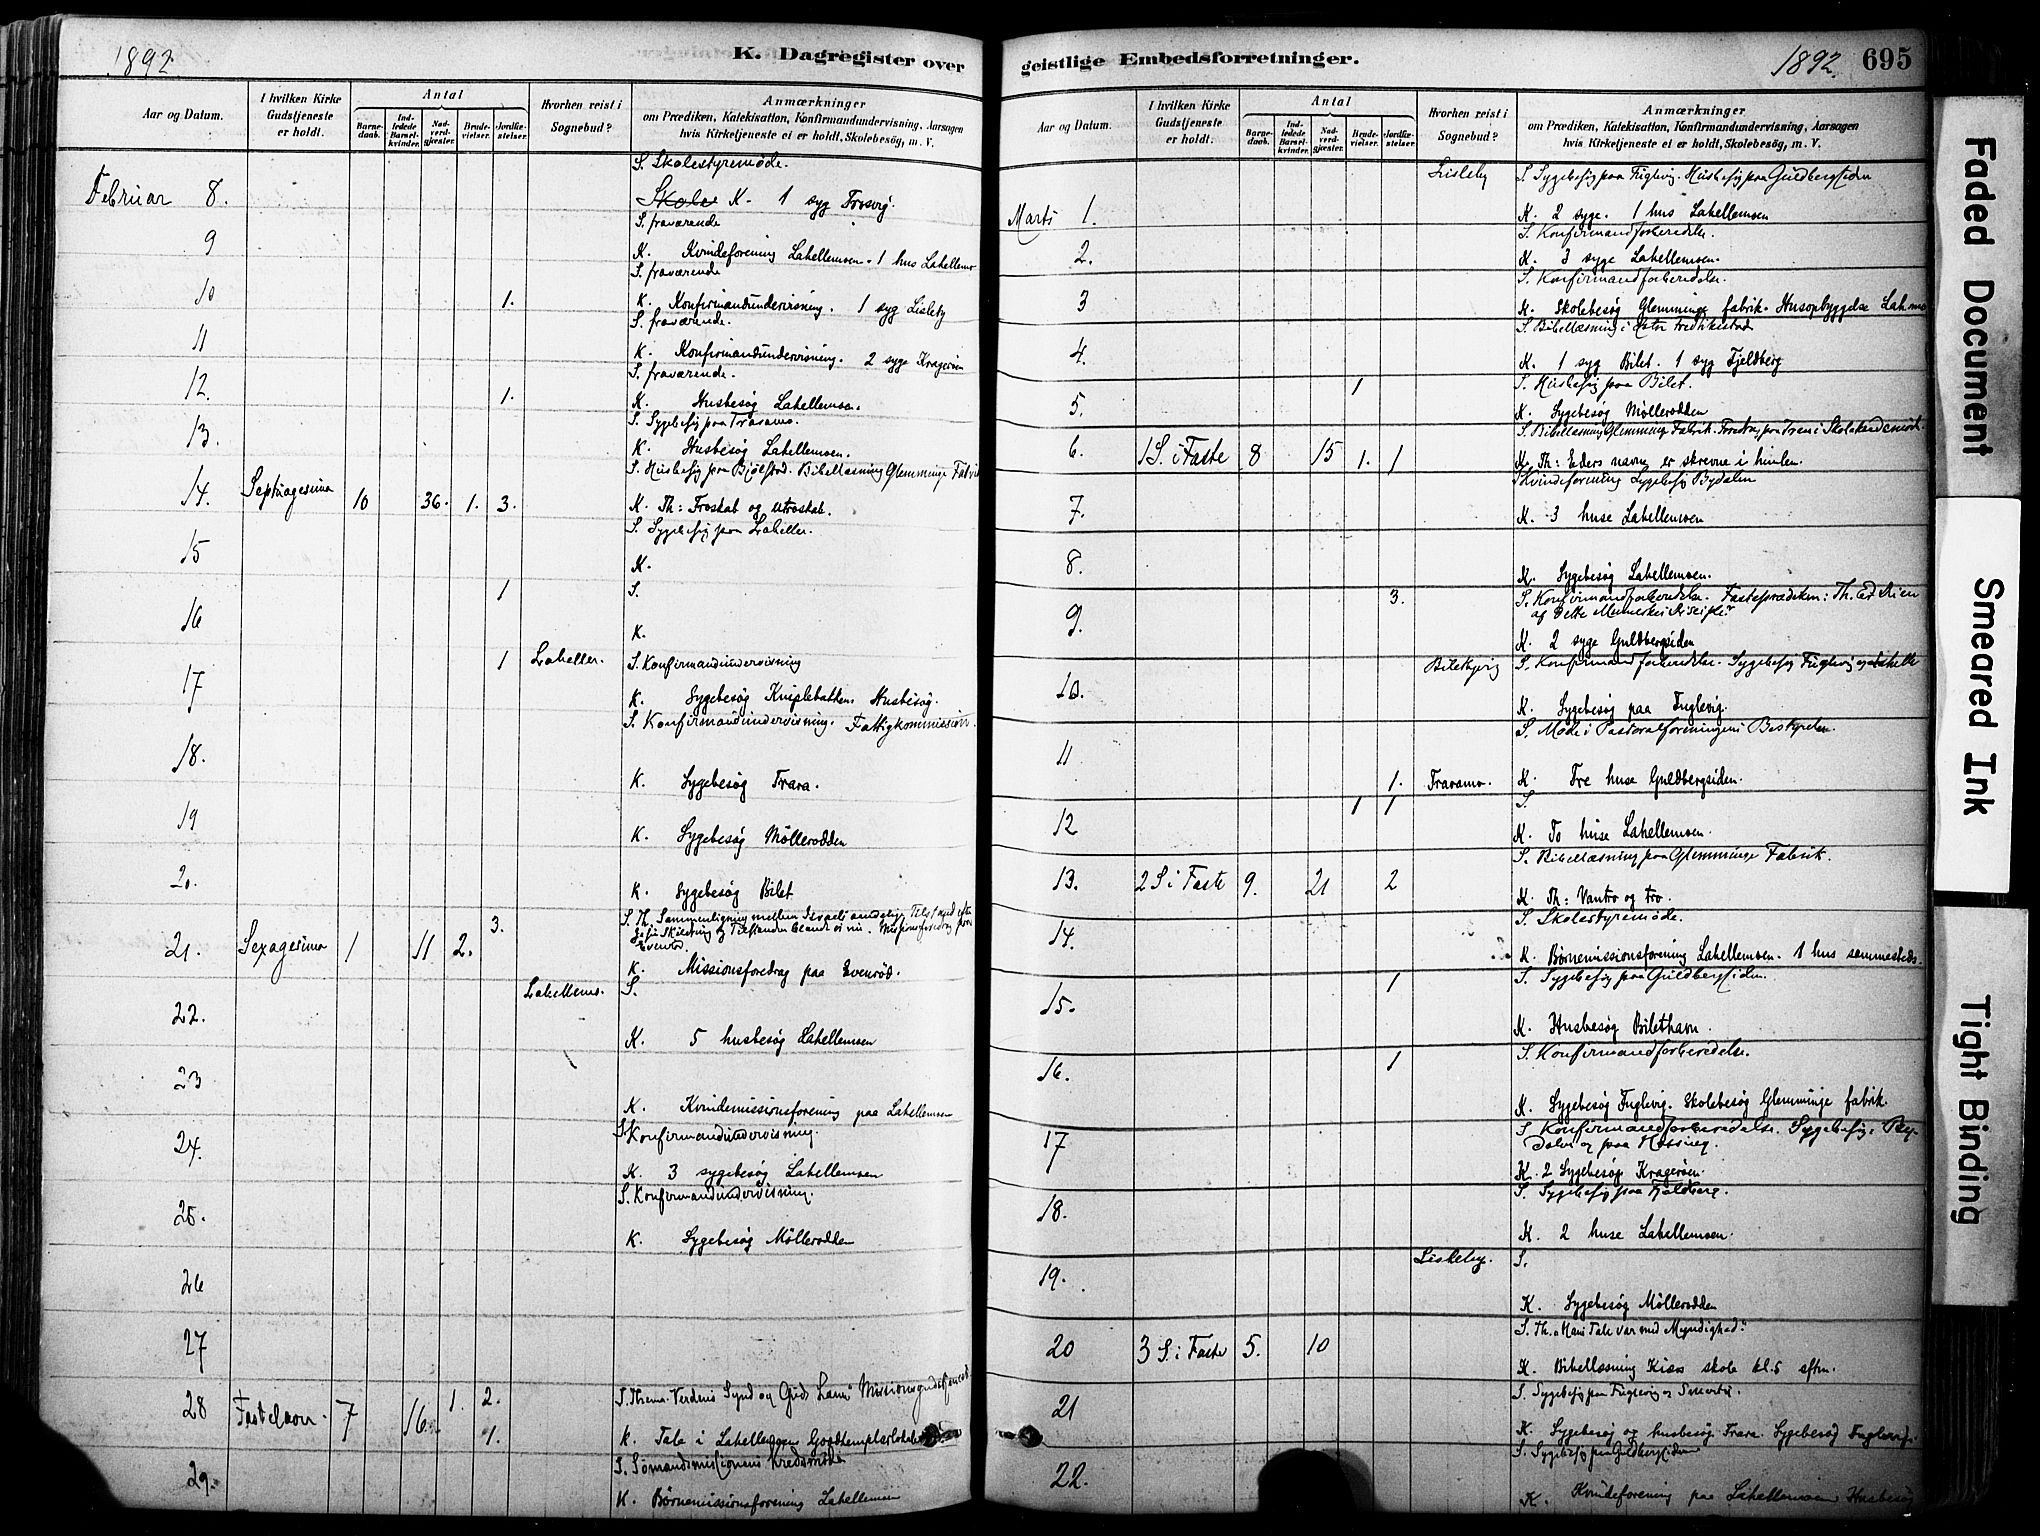 1892
K. Dagregister over
Aar og Datum.
I hvilken Kirke Gudstjeneste er holdt.
Antal
Barnedaab.
Indledede Barselkvinder.
Nadverdgjæster.
Brudevielser.
Jordfæstelser.
Hvorhen reist i Sognebud?
Anmærkninger
om Prædiken, Katekisation, Konfirmandundervisning, Aarsagen
hvis Kirketjeneste ei er holdt, Skolebesøg, m. V.
S. Skolestyremøde.
Februar 8. K. 1 syg Trosvig.
S. fraværende
9 K. Kvindeforening Lahellemoen. 1 hus Lahellemo
S. fraværende
10 1. K. Konfirmandundervisning. 1 syg Lisleby
S. fraværende.
11 K. Konfirmandundervisning. 2 syge Kragerøen
S. fraværende.
12. 1. K. Husbesøg Lahellemoen.
S. Sygebesøg paa Traramo.
13. K. Husbesøg Lahellemoen.
S. Husbesøg paa Bjølstad. Bibellæsning Glemminge Fabrik
14. Septuagesima 10 36. 1. 3. K. Th: Troskab og utroskab.
S. Sygebesøg paa Lahellen.
15 K.
1 S.
16 K.
1 Lahellen. S. Konfirmandundervisning
17 K. Sygebesøg Kniplebakken. Husbesøg.
S. Konfirmandundervisning. Fattigkommission.
18. K. Sygebesøg Trara.
19 K. Sygebesøg Møllerodden
20. K. Sygebesøg Bilet
3. S. Th. Sammenligning mellem Israels aandelige Tilstand efter
Jesu Skildring og Tilstanden blandt os nu. Missionsforedrag paa
Evenrød.
21. Sexagesima 1 11 2. K. Missionsforedrag paa Evenrød.
Lahellemo. S.
22. K. 5 husbesøg Lahellemoen
23 K. Kvindemissionsforening paa Lahellemoen
S. Konfirmandundervisning.
24. K. 3 sygebesøg Lahellemoen
S. Konfirmandundervisning.
25. K. Sygebesøg Møllerodden
26
27
1. 2. S. Thema: Verdens Synd og Guds Lam. Missionsgudstjeneste
28 Fastelavn. 7 16. 1. K. Tale i Lahellemoen Goodtemplarlokale
S. Sømandsmissionens Kredsmøde
29. K. Børnemissionsforening Lahellemoen
geistlige Embedsforretninger.
1892. 695
Aar og Datum.
I hvilken Kirke Gudstjeneste er holdt.
Antal
Barnedaab.
Indledede Barselkvinder.
Nadverdgjæster.
Brudevielser.
Jordfæstelser.
Hvorhen reist i Sognebud?
Anmærkninger
om Prædiken, Katekisation, Konfirmandundervisning, Aarsagen
hvis Kirketjeneste ei er holdt, Skolebesøg, m. V.
Lisleby S. Sygebesøg paa Fuglevig. Husbesøg paa Guldbergsiden
Marts 1. K. 2 syge. 1 hus Lahellemoen
S. Konfirmandforberedelse.
2. K. 3 syge Lahellemoen.
S. Konfirmandforberedelse.
3 K. Skolebesøg Glemminge fabrik. Husopbyggelse Lah.mo
S. Bibellæsning i Øster Fredrikstad
4. K. 1 syg Bilet. 1 syg Fjeldberg
1 S. Husbesøg paa Bilet.
5. K. Sygebesøg Møllerodden
S. Bibellæsning Glemminge Fabrik.
6. 1 S. i Faste 8 15 1. 1 K. Th: Eders navne er skrevne i himlen.
Kvindeforening Sygebesøg Bydalen
7. K. 3 huse Lahellemoen
8. K. Sygebesøg Lahellemoen.
3. S. Konfirmandforberedelse. Fasteprædiken: Th. Er Du en
af dette Menneskes Disciple?
9. K. 2 syge Guldbergsiden
Biletvig S. Konfirmandforberedelse. Sygebesøg Fuglevig og Lahelle
10. K. Sygebesøg paa Fuglevig.
S. Møde i Pastoralforeningens Bestyrelse.
11 1. Traramo. K. Tre huse Guldbergsiden.
1 1 S
12 K. To huse Lahellemoen.
S. Bibellæsning paa Glemminge Fabrik.
13. 2 S i Faste 9. 21 2 K. Th: Vantro og tro.
S. Skolestyremøde.
14. K. Børnemissionsforening Lahellemoen. 1 hus sammesteds.
1 S. Sygebesøg paa Guldbergsiden.
15. K. Husbesøg Bilethavn.
1 S. Konfirmandforberedelse.
16. K. Sygebesøg Fuglevig. Skolebesøg Glemminge fabrik
S. Konfirmandforberedelse. Sygebesøg i By-
dalen og paa
17 K. 2 Sygebesøg Kragerøen.
S. Sygebesøg paa Fjeldberg.
18. K. 2 huse Lahellemoen.
Lisleby. S.
19. K. Sygebesøg Møllerodden
S. Th. "Hans Tale var med Myndighed."
20 3 S. i Faste 5. 10 K. Bibellæsning Kiæs skole kl. 5 eftm.
S. Sygebesøg paa Fuglevig og
21 K. Sygebesøg og husbesøg Trara. Sygebesøg Fuglevig.
S. Sygebesøg paa Guldbergsiden
22. K. Kvindeforening paa Lahellemoen Husbesøg
Faded Document
Smeared Ink
Tight Binding